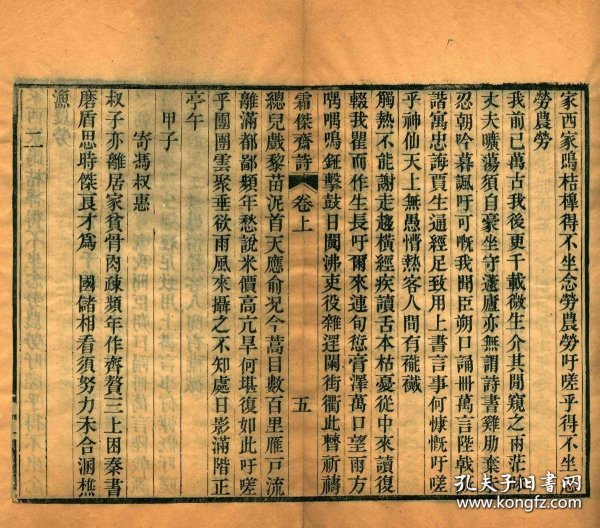 家西家鳴桔槹得不坐念勞農勞吁嗟乎得不坐念
勞農勞
我前已萬古我後更千載微生介其間窺之兩茫
丈夫曠蕩須自豪坐守蘧廬亦無謂詩書雞肋棄
忍朝吟暮諷吁可嘅我聞臣朔口誦冊萬言陛戟
諧寓忠誨賈生通經足致用上書言事何慷慨吁嗟
乎神仙天上無愚懵熱客人間有䙝襶
觸熱不能謝走趨橫經疾讀舌本枯憂從中來讀復
輟我瞿而作生長吁爾來連旬愆膏澤萬口望雨方
喁喁鳴鉦擊鼓日闐沸吏役雜遝闌街衢此瞽祈禱
霜傑齋詩 卷上 五
總兒戲黎苗泥首天應俞况今蒿目數百里雁戸流
離滿都鄙頻年愁說米價高亢旱何堪復如此吁嗟
乎團團雲聚垂欲雨風來攝之不知處日影滿階正
亭午
甲子
寄馮叔惠
叔子亦離居家貧骨肉疎頻年作齊贅三上困秦書
磨盾思時傑良才爲 國儲相看須努力未合溷樵
漁
二
孔夫子旧书网
kongfz.com